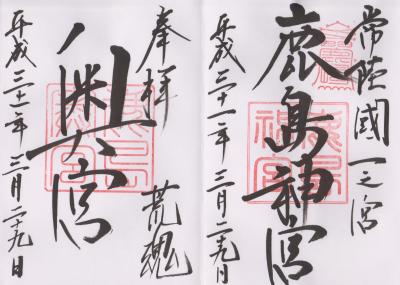 常陸國一之宮
鹿島神宮
平成三十一年三月二十九日
奉拝 荒魂
奥宮
平成三十一年三月二十九日